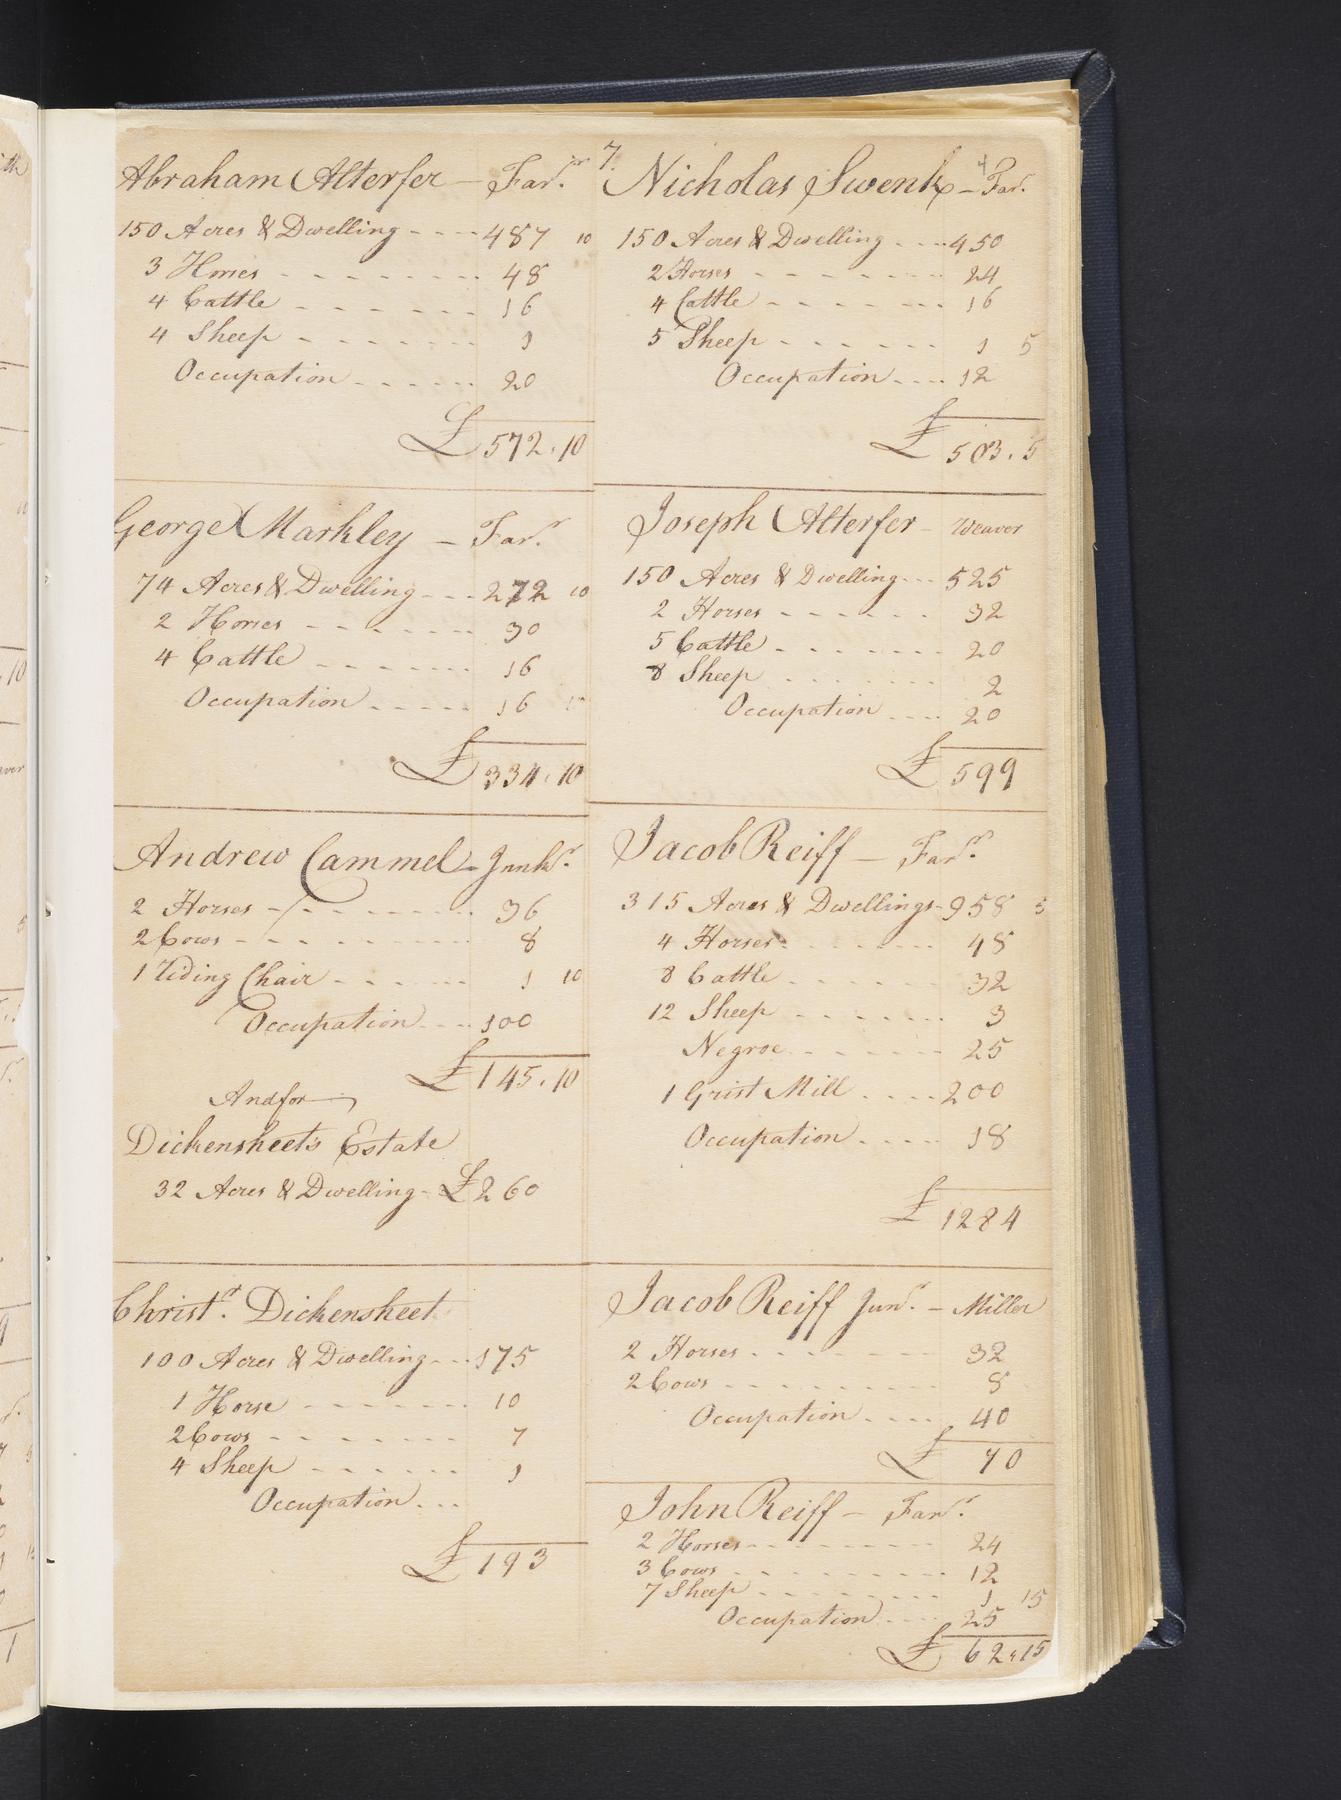 Abraham Alterfer — Far.r
150 Acres & Dwelling - - - - 487 10
3 Horses - - - - - - - 48
4 Cattle - - - - - - - 16
4 Sheep - - - - - - - 1
Occupation - - - - - - 20
£ 572. 10
George Markley — Far.r
74 Acres & Dwelling - - - 272 10
2 Horses - - - - - - - 30
4 Cattle - - - - - - - 16
Occupation - - - - - 16
£ 334. 10
Andrew Cammel - Innk.r
2 Horses - - - - - - - 36
2 Cows - - - - - - - 8
1 Riding Chair - - - - - - 1 10
Occupation - - - - 100
£ 145. 10
And for
Dickensheet's Estate
32 Acres & Dwelling - £ 260
Christ.r Dickensheet
100 Acres & Dwelling - - - 175
1 Horse - - - - - - - 10
2 Cows - - - - - - - 7
4 Sheep - - - - - - 1
Occupation - - -
£ 193
7.
Nicholas Swenk — Far.r
4
150 Acres & Dwelling - - - - 450
2 Horses - - - - - - - 24
4 Cattle - - - - - - - 16
5 Sheep - - - - - - 1 5
Occupation - - - - 12
£ 503. 5
Joseph Alterfer - Weaver
150 Acres & Dwelling - - - 525
2 Horses - - - - - - 32
5 Cattle - - - - - - - 20
8 Sheep - - - - - - - 2
Occupation - - - - 20
£ 599
Jacob Reiff — Far.r
315 Acres & Dwellings - 958 5
4 Horses - - - - - - - 48
8 Cattle - - - - - - - 32
12 Sheep - - - - - - - 3
Negroe - - - - - - - 25
1 Grist Mill - - - - 200
Occupation - - - - - 18
£ 1284
Jacob Reiff Jun.r — Miller
2 Horses - - - - - - - 32
2 Cows - - - - - - - - 8
Occupation - - - - 40
£ 70
John Reiff — Far.r
2 Horses - - - - - - - - 24
3 Cows - - - - - - - - 12
7 Sheep - - - - - - - - 1 15
Occupation - - - - 25
£ 62. 15